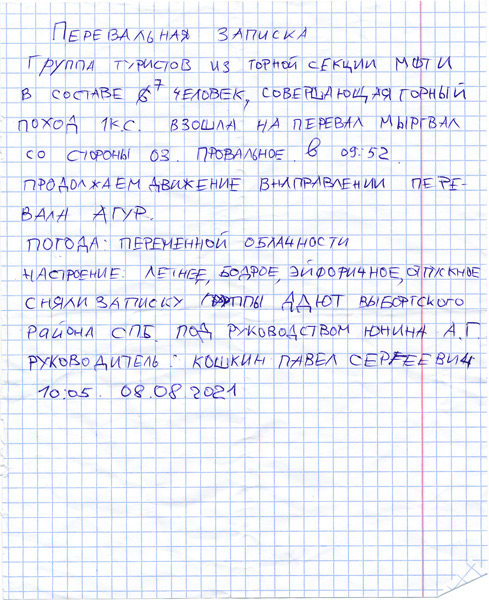 ПЕРЕВАЛЬНАЯ ЗАПИСКА
ГРУППА ТУРИСТОВ ИЗ ГОРНОЙ СЕКЦИИ МФТИ
В СОСТАВЕ 7 ЧЕЛОВЕК, СОВЕРШАЮЩАЯ ГОРНЫЙ
ПОХОД 1К.С. ВЗОШЛА НА ПЕРЕВАЛ МЫРГВАЛ
СО СТОРОНЫ ОЗ. ПРОВАЛЬНОЕ В 09:52.
ПРОДОЛЖАЕМ ДВИЖЕНИЕ В НАПРАВЛЕНИИ ПЕРЕ-
ВАЛА АГУР.
ПОГОДА: ПЕРЕМЕННОЙ ОБЛАЧНОСТИ
НАСТРОЕНИЕ: ЛЕТНЕЕ, БОДРОЕ, ЭЙФОРИЧНОЕ, ОТПУСКНОЕ
СНЯЛИ ЗАПИСКУ ГРУППЫ ДДЮТ ВЫБОРГСКОГО
РАЙОНА СПБ. ПОД РУКОВОДСТВОМ ЮНИНА А.Г.
РУКОВОДИТЕЛЬ: КОШКИН ПАВЕЛ СЕРГЕЕВИЧ
10:05. 08.08.2021